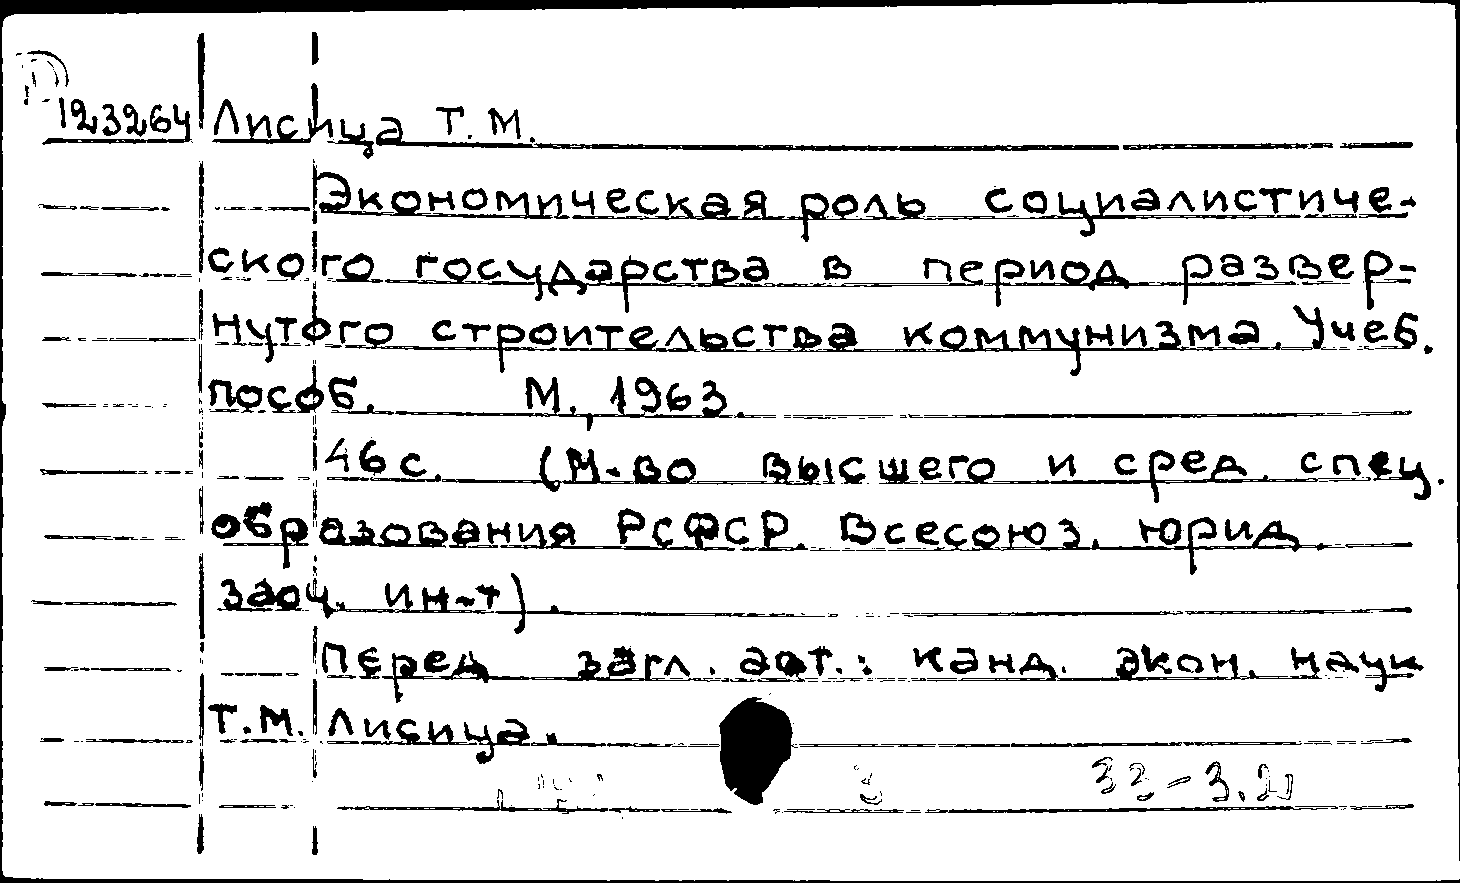 123264 Лисица Т. М.
Экономическая роль социалистиче-
ского государства в период развер-
нутого строительства коммунизма. Учеб.
пособ. М., 1963.
46 с. (М-во высшего и сред. спец.
образования РСФСР. Всесоюз. юрид.
заоч. ин-т).
Перед загл. авт.: канд. экон. наук
Т.М. Лисица.
3 33-3.21